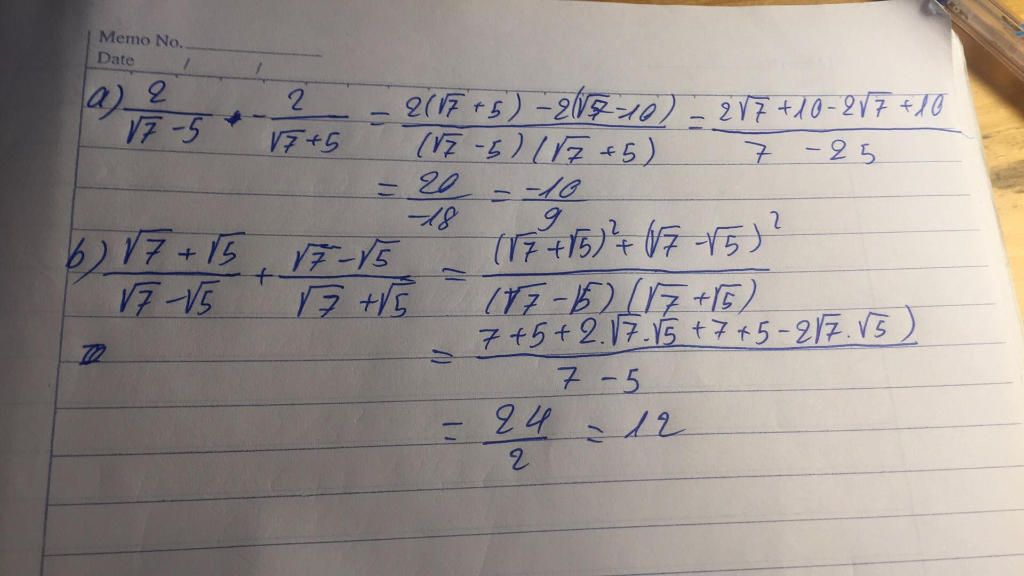 Memo No.
Date / /
a) 2/(√7 - 5) - 2/(√7 + 5) = (2(√7 + 5) - 2(√7 - 10))/((√7 - 5)(√7 + 5)) = (2√7 + 10 - 2√7 + 10)/(7 - 25)
= 20/-18 = -10/9
b) (√7 + √5)/(√7 - √5) + (√7 - √5)/(√7 + √5) = ((√7 + √5)² + (√7 - √5)²)/((√7 - √5)(√7 + √5))
= (7 + 5 + 2.√7.√5 + 7 + 5 - 2√7.√5))/(7 - 5)
= 24/2 = 12